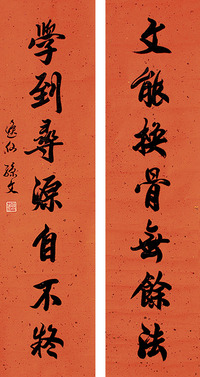 文能換骨無餘法
學到尋源自不疑
逸仙孫文